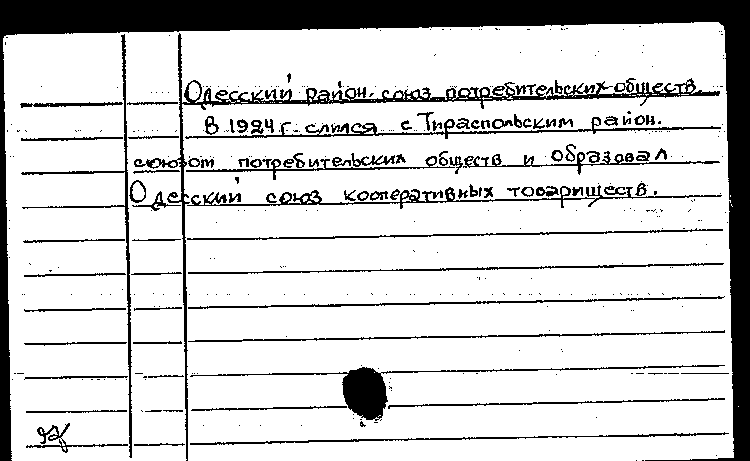 Одесский район. союз потребительских обществ.
В 1924 г. слился с Тираспольским район.
союзом потребительских обществ и образовал
Одесский союз кооперативных товариществ.